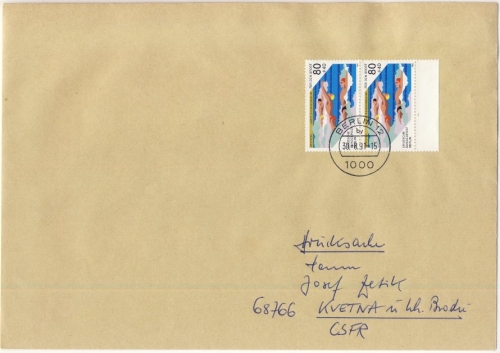 80 80
+40 +40
BERLIN 12
by
30.-8.91-15
1000
Drucksache
Josef
68766 KVETNA u Uh. Brodu
CSFR